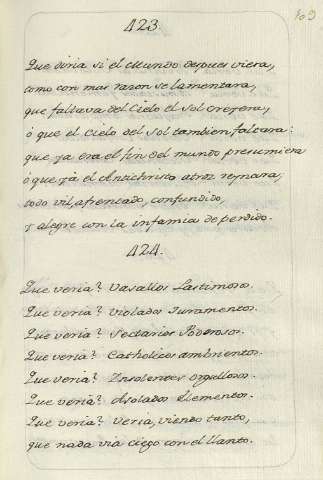 109
423.
Que diria si el Mundo despues viera,
como con mas razon se lamentara,
que faltava del Cielo el Sol creyera,
ò que el Cielo del Sol tambien faltara:
que ya era el fin del mundo presumiera
ò que yà el Antichristo atroz reynara,
todo vil, afrentado, confundido,
y alegre con la infamia de perdido.
424.
Que veria? Vasallos Lastimosos.
Que veria? Violados Juramentos.
Que veria? Sectarios Poderosos.
Que veria? Catholicos ambrientos.
Que veria? Insolentes orgullosos.
Que veria? Asolados Elementos.
Que veria? Veria, viendo tanto,
que nada via ciego con el llanto.